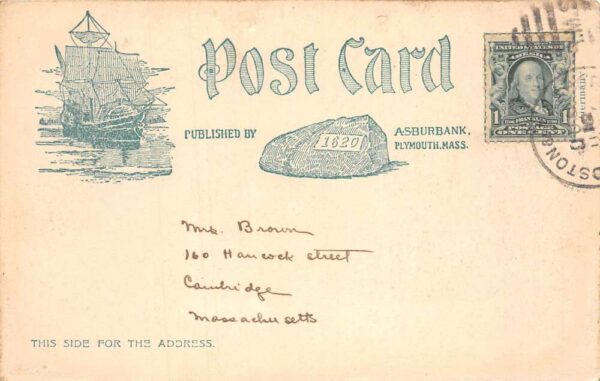 Post Card
PUBLISHED BY
A·S·BURBANK,
PLYMOUTH, MASS.
1620
UNITED STATES OF
AMERICA
1 1
FRANKLIN
POSTAGE
ONE CENT
Germany
OSTON &
Mrs. Brown
160 Hancock street
Cambridge
Massachusetts
THIS SIDE FOR THE ADDRESS.